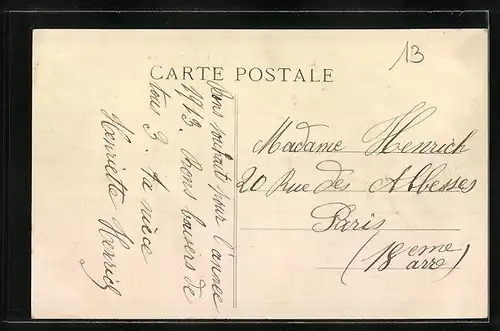 13
CARTE POSTALE
Bons souhait pour l'année
1913. Bons baisers de
tous 3. Ta nièce
Henriette Henrich
Madame Henrich
20 Rue des Abbesses
Paris
(18eme
arre)